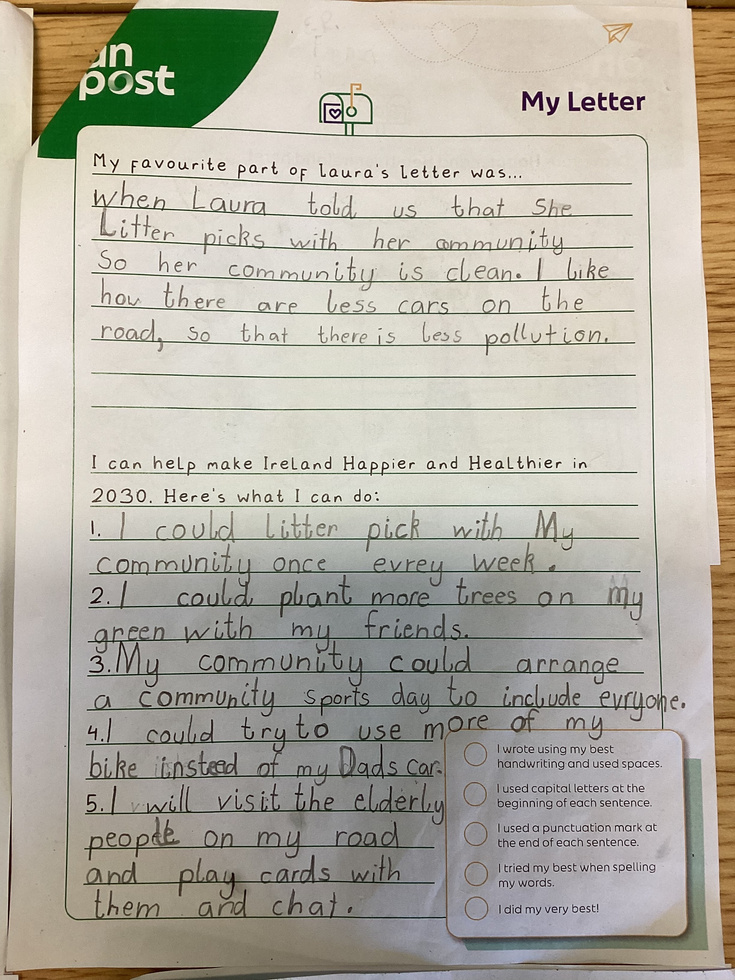 an
post
My Letter
My favourite part of Laura's letter was...
When Laura told us that She
Litter picks with her ommunity
So her community is clean. I like
how there are less cars on the
road, so that there is less pollution.
I can help make Ireland Happier and Healthier in
2030. Here's what I can do:
1. I could litter pick with My
community once evrey week.
2. I could plant more trees on my
green with my friends.
3. My community could arrange
a community sports day to include evryone.
4. I could try to use more of my
bike instead of my Dads car.
5. I will visit the elderly
people on my road
and play cards with
them and chat.
I wrote using my best
handwriting and used spaces.
I used capital letters at the
beginning of each sentence.
I used a punctuation mark at
the end of each sentence.
I tried my best when spelling
my words.
I did my very best!